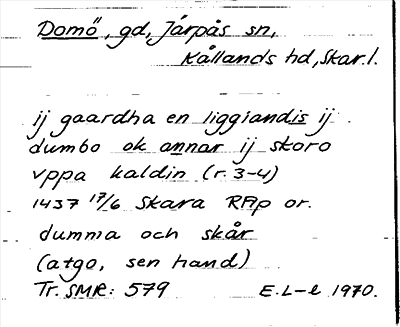 Domö, gd, Järpås sn,
Kållands hd, Skar.l.
ij gaardha en liggiandis ij
dumbo ok annar ij skoro
vppa kaldin (r. 3-4)
1437 17/6 Skara RAp or.
dumma och skår
(atgo, sen hand)
Tr. SMR: 579 E.L-l 1970.